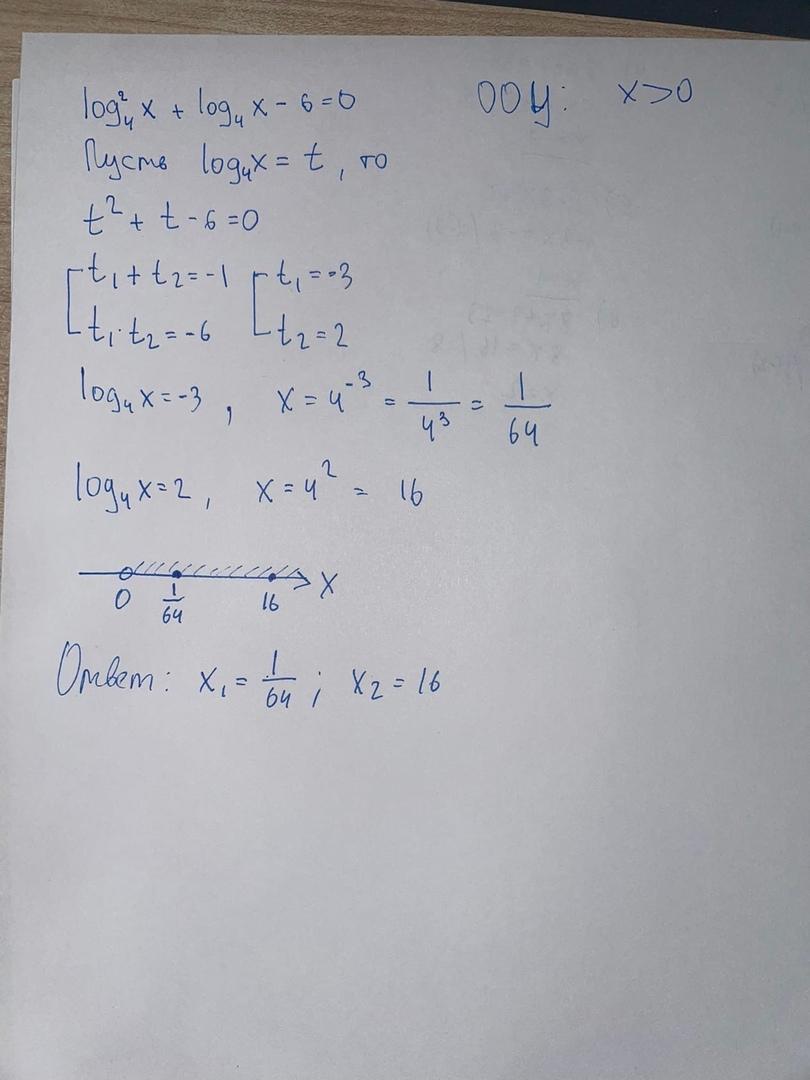 log₄² x + log₄ x - 6 = 0 ООУ: x > 0
Пусть log₄x = t, то
t² + t - 6 = 0
t₁ + t₂ = -1 t₁ = -3
t₁ · t₂ = -6 t₂ = 2
log₄ x = -3, x = 4⁻³ = 1/4³ = 1/64
log₄ x = 2, x = 4² = 16
0 1/64 16 x
Ответ: x₁ = 1/64; x₂ = 16